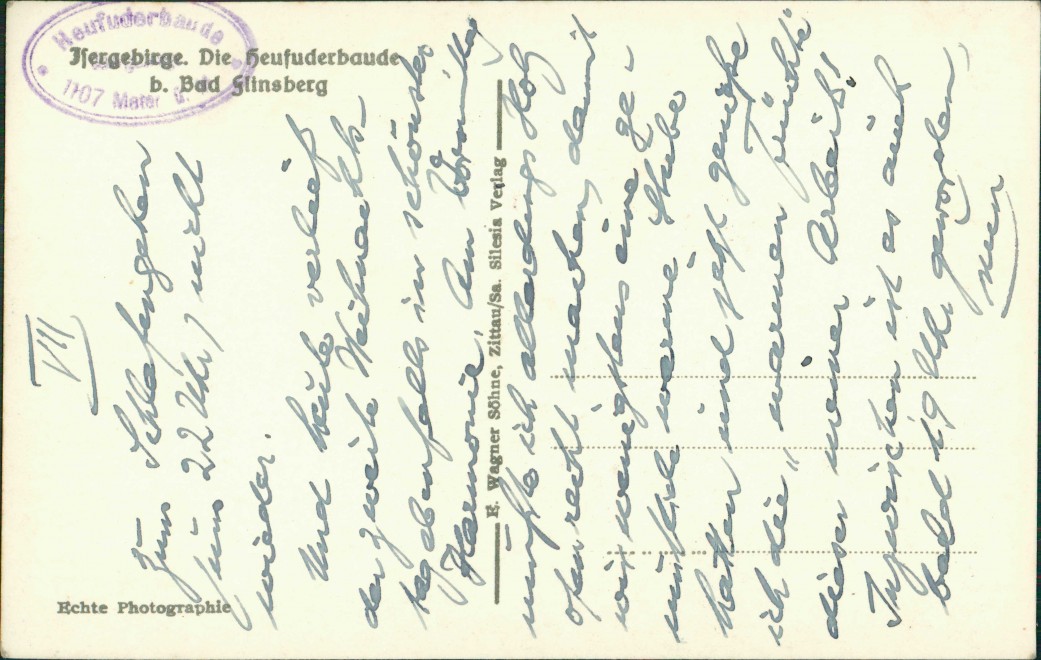 Heufuderbaude
1107 Meter ü.
Isergebirge. Die Heufuderbaude
b. Bad Flinsberg
E. Wagner Söhne, Zittau/Sa. Silesia Verlag
Echte Photographie
VII
zum Schlafengehen
(um 22 Uhr) nicht
wieder.
Und heute verlief
der zweite Weihnachts-
tag ebenfalls in schönster
Harmonie. Am Vormittag
mußte ich allerdings Holz
ofenrecht machen, damit
wir wenigstens eine ge-
mütliche warme Stube
hatten und jetzt genieße
ich die „warmen Früchte"
dieser meiner Arbeit!
Inzwischen ist es auch
bald 19 Uhr geworden,
nun